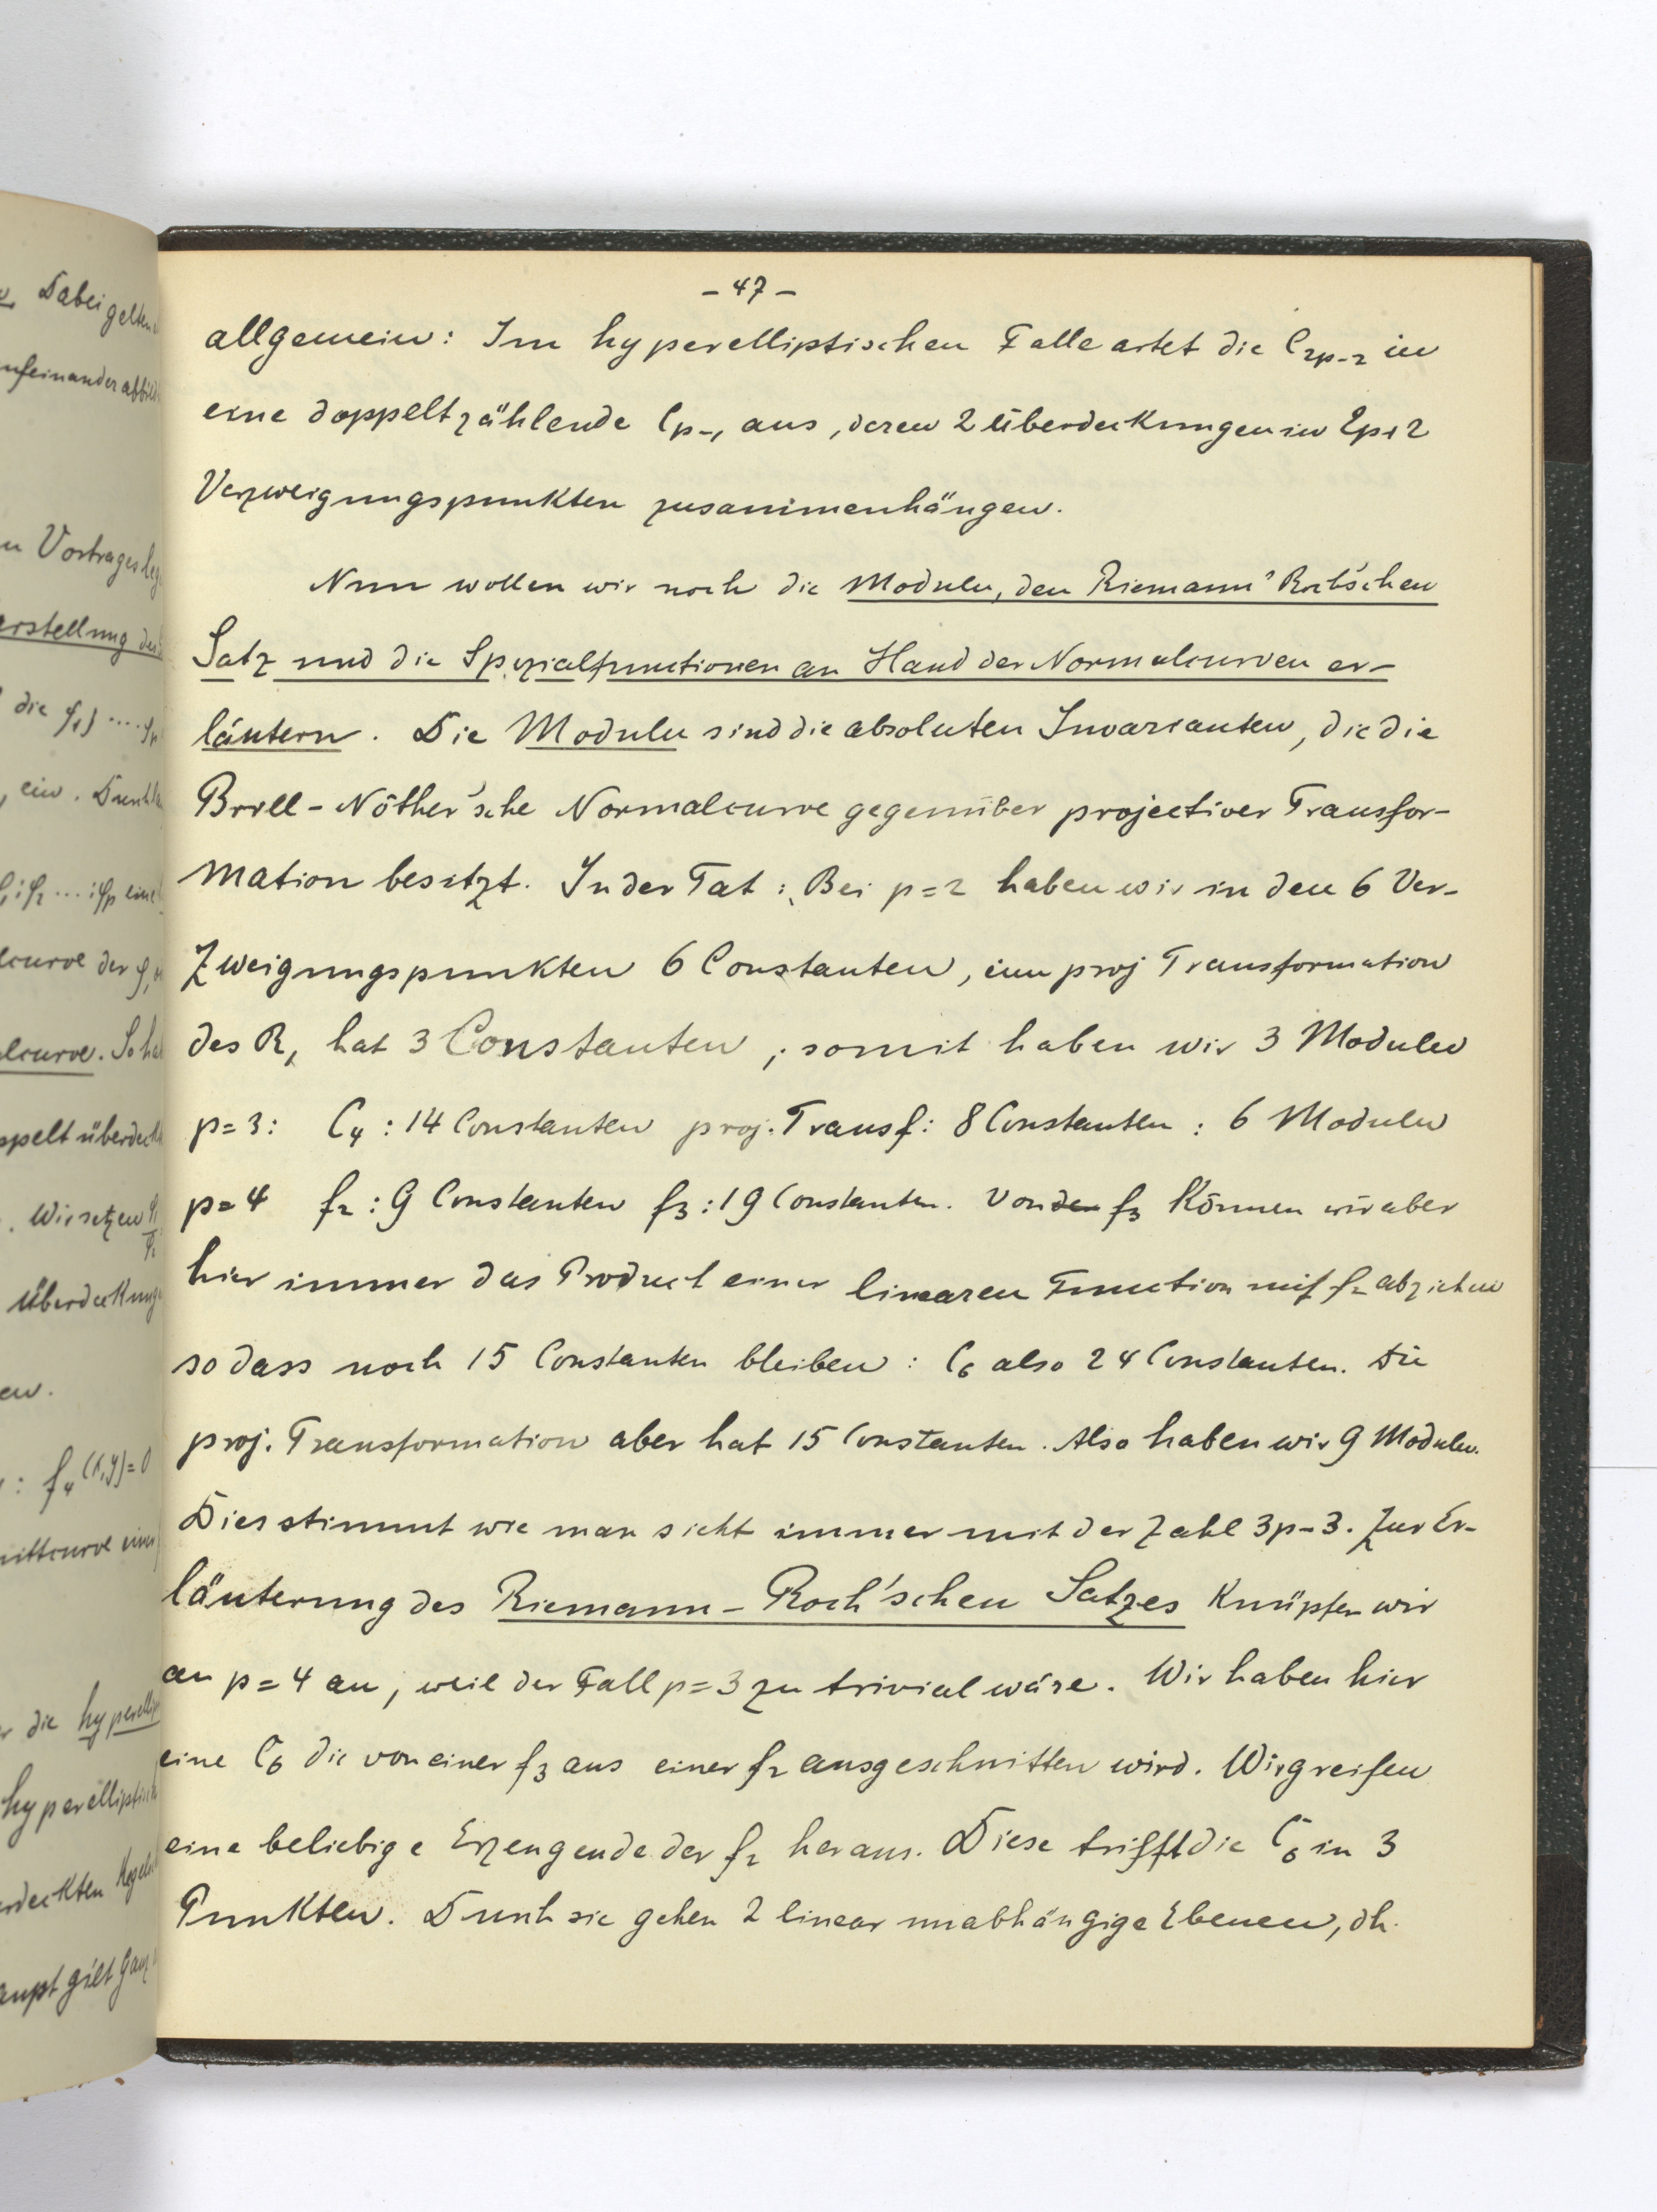 - 47 -
allgemein: Im hyperelliptischen Falle artet die C₂ₚ₋₂ in
eine doppeltzählende Cₚ₋₁ aus, deren 2 Überdeckungen in 2p+2
Verzweigungspunkten zusammenhängen.
Nun wollen wir noch die Moduln, den Riemann' Roch'schen
Satz und die Spezialfunctionen an Hand der Normalcurven er-
läutern. Die Moduln sind die absoluten Invarianten, die die
Brill-Nöther'sche Normalcurve gegenüber projectiver Transfor-
mation besitzt. In der Tat: Bei p=2 haben wir in den 6 Ver-
zweigungspunkten 6 Constanten, eine proj Transformation
des R₁ hat 3 Constanten, somit haben wir 3 Moduln
p=3: C₄: 14 Constanten proj. Transf: 8 Constanten: 6 Moduln
p=4 f₂: 9 Constanten f₃: 19 Constanten. Von der f₃ können wir aber
hier immer das Product einer linearen Function mit f₂ abziehen
so dass noch 15 Constanten bleiben: C₆ also 24 Constanten. Die
proj. Transformation aber hat 15 Constanten. Also haben wir 9 Moduln.
Dies stimmt wie man sieht immer mit der Zahl 3p-3. Zur Er-
läuterung des Riemann-Roch'schen Satzes knüpfen wir
an p=4 an, weil der Fall p=3 zu trivial wäre. Wir haben hier
eine C₆ die von einer f₃ aus einer f₂ ausgeschnitten wird. Wir greifen
eine beliebige Erzeugende der f₂ heraus. Diese trifft die C₆ in 3
Punkten. Durch sie gehen 2 linear unabhängige Ebenen, dh.
Dabei gelten
aufeinander abbild
n Vortrages
erstellung der
die φ₁
ein. Durch
eine
curve der φ
lcurve. So
ppelt überdeckt
Wir setzen
Überdeckung
en.
: f₄(x,y)=0
nittcurve einer
r die hyperellip
hyperelliptisch
erdeckten
aupt gilt ganz